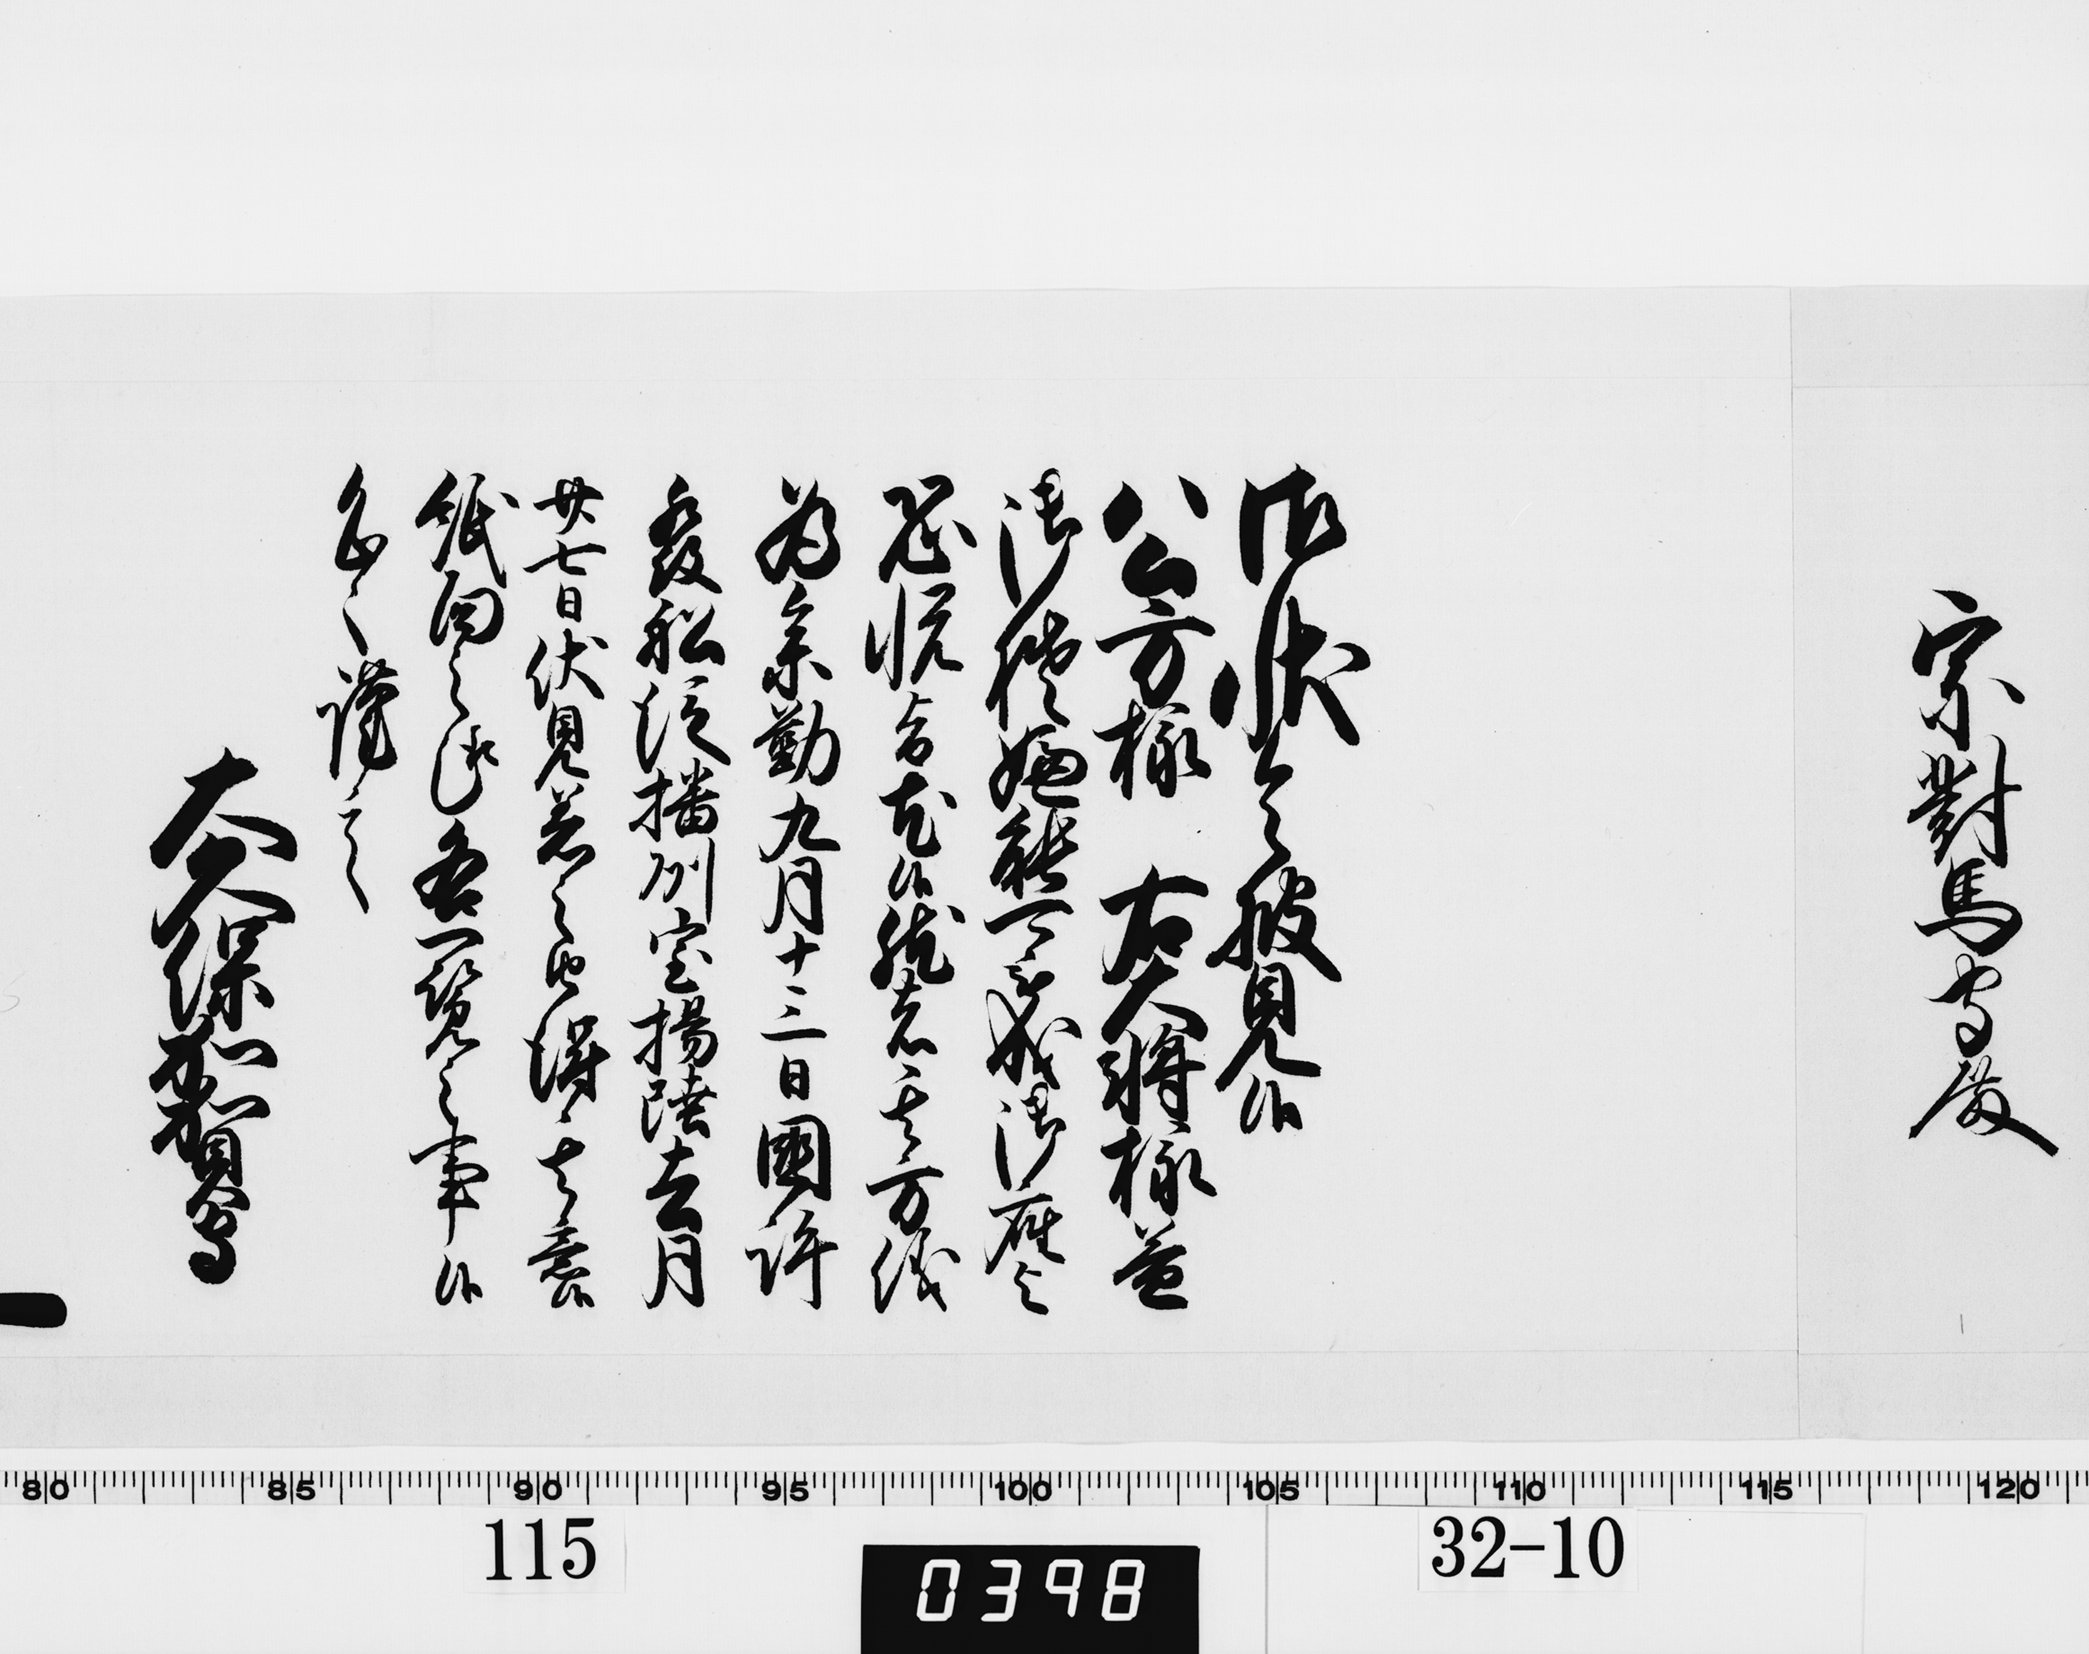 宗對馬守殿
御状令披見候
公方様 右大将様益
御機嫌能可被成御座与
恐悦旨尤候然者其方儀
為参勤九月十三日國許
發船従播州室揚陸去月
廿七日伏見着之由得其意候
紙面之趣各一覧之事候
恐々謹言
大久保加賀守
80 85 90 95 100 105 110 115 120
115
0398
32-10